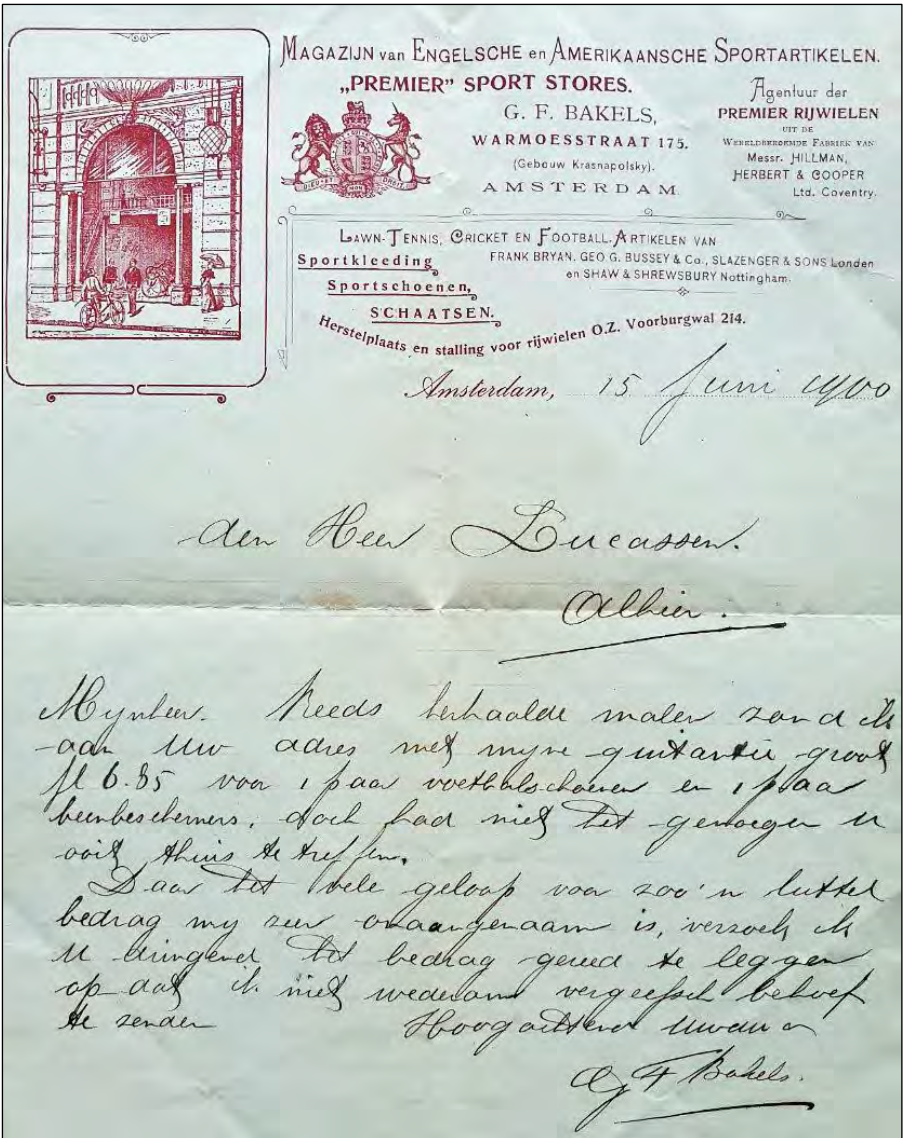 MAGAZIJN van ENGELSCHE en AMERIKAANSCHE SPORTARTIKELEN.
„PREMIER" SPORT STORES.
G. F. BAKELS,
WARMOESSTRAAT 175.
(Gebouw Krasnapolsky).
AMSTERDAM
Agentuur der
PREMIER RIJWIELEN
UIT DE
WERELDBEROEMDE FABRIEK VAN
Messr. HILLMAN,
HERBERT & COOPER
Ltd. Coventry.
DIEU ET MON DROIT
LAWN-TENNIS, CRICKET EN FOOTBALL-ARTIKELEN VAN
FRANK BRYAN, GEO G. BUSSEY & Co., SLAZENGER & SONS Londen
en SHAW & SHREWSBURY Nottingham.
Sportkleeding
Sportschoenen,
SCHAATSEN.
Herstelplaats en stalling voor rijwielen O.Z. Voorburgwal 214.
Amsterdam, 15 Juni 1900
den Heer Lucassen.
Alhier.
Mynheer. Reeds herhaalde malen zond ik
aan Uw adres met myne quitantie groot
fl 6.85 voor 1 paar voetbalschoenen en 1 paar
beenbeschermers, doch had niet het genoegen U
ooit thuis te treffen.
Daar het vele geloop voor zoo'n luttel
bedrag my zeer onaangenaam is, verzoek ik
U dringend het bedrag gereed te leggen
op dat ik niet wederom vergeefsch behoef
te zenden Hoogachtend
G F Bakels.